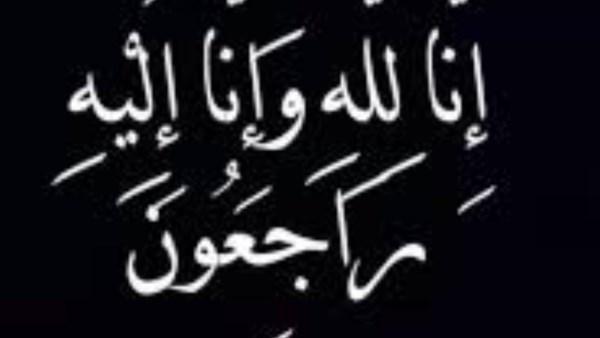 إنا لله وإنا إليه
رَاجَعُونَ